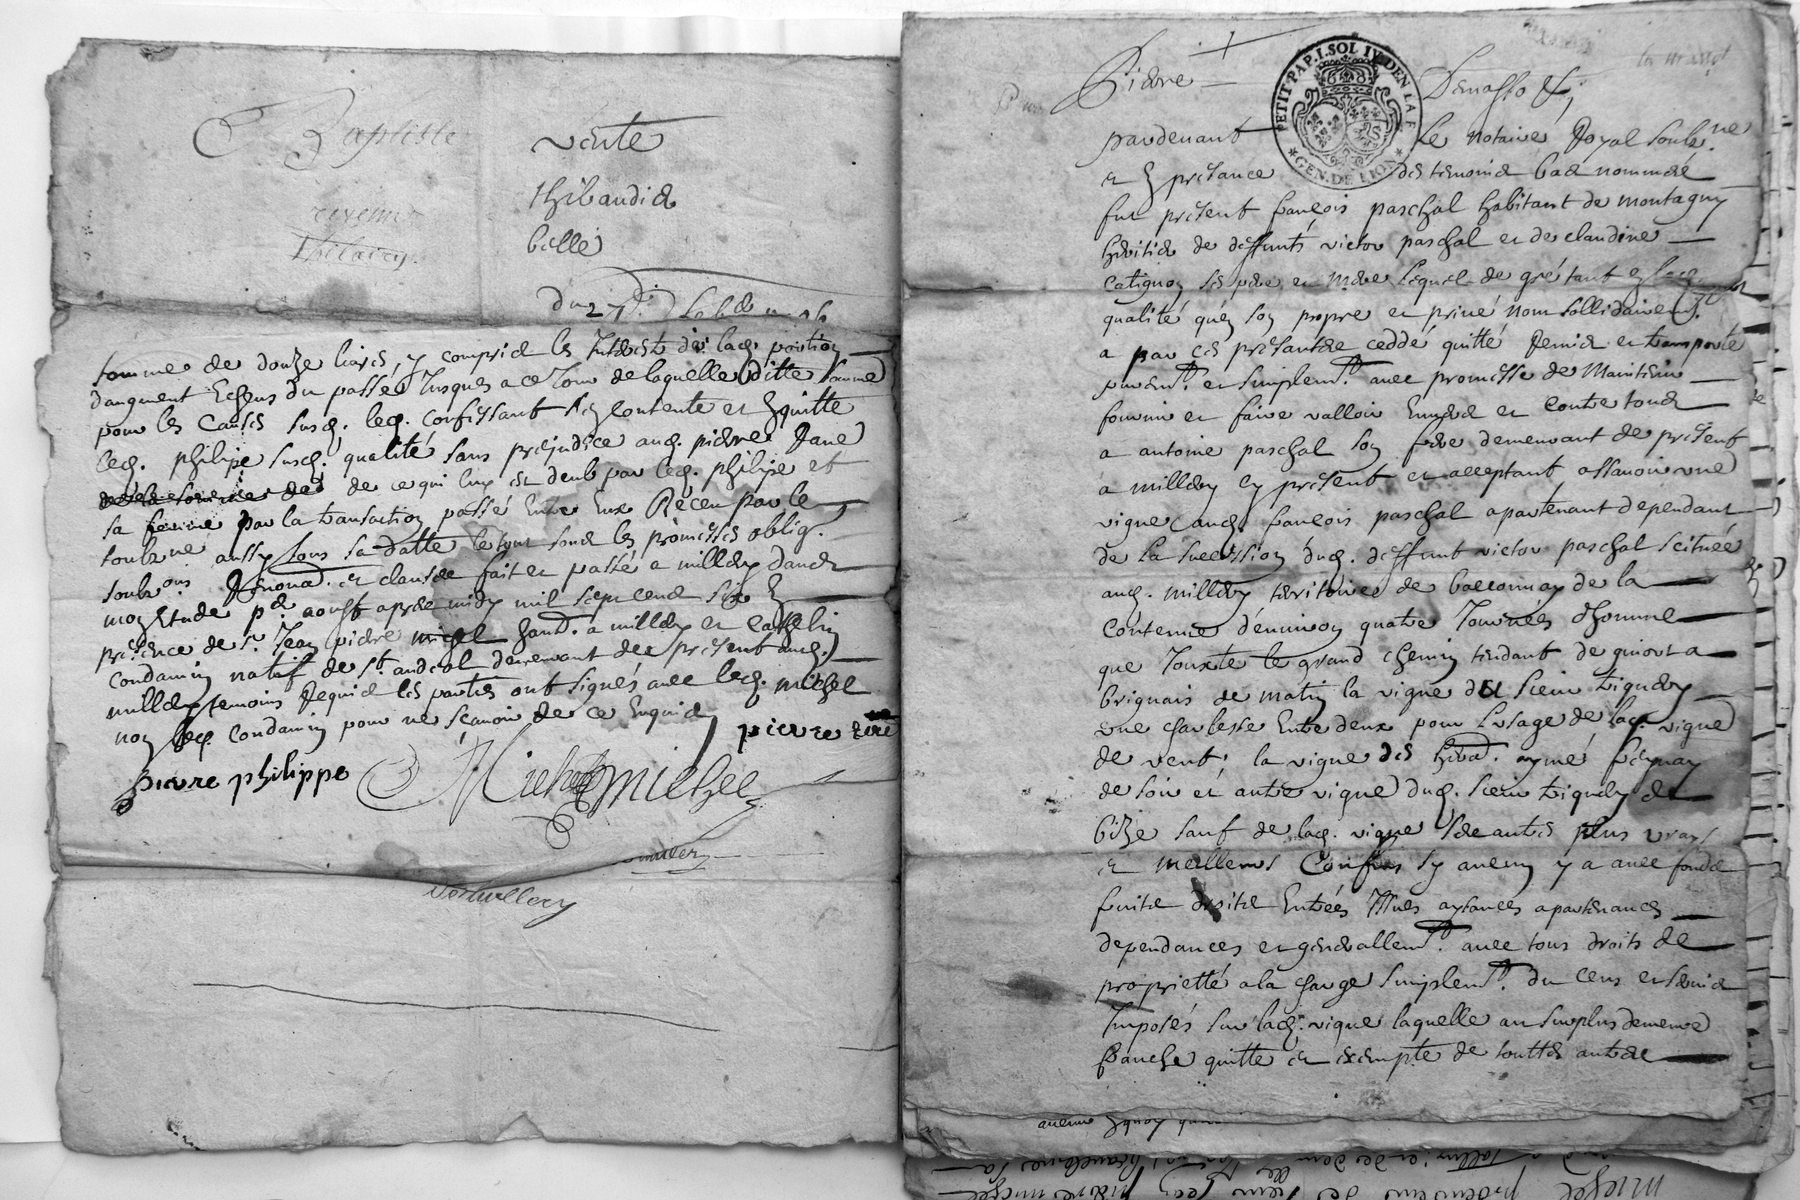 Baptiste
vente
thibaudier
belle
du 27
somme de douze livres, y compris les Interest de lad. portion
daugment Echeus du passé Jusques a ce Jour de laquelle ditte somme
pour les causes susd. led. confessant bien contente et Equitte
led. philipe susd. qualité sans prejudice aud. pierre Rave
de ce qui luy est deub par led. philipe et
sa femme par la transaction passé Entre Eux Receu par le
soub.né aussy sous sa datte le tout sous les promesses oblig.
soub.ons Renond. et clauses fait et passé a millery dans
mon Etude p.er aoust apres midy mil sept cens six En
presence de s.r Jean pierre michel hand. a millery et Cathelin
Condamin natif de s.t andeol demeurant de present aud.
millery temoins Requis les parties ont signés avec led. michel
non led. Condamin pour ne scavoir de ce Enquis
pierre reve
pierre philippe
Michel michel
PETIT PAP. I. SOL IV DEN LA F.
GEN. DE LION
Pierre
pardevant Le notaire Royal soubz.ne
et En presance des temoins bas nommés
fut present françois paschal habitant de montagny
heritier de deffunts victor paschal et de claudine
Catignon ses pere et mere Lequel de gré tant En lad.
qualité qu'en son propre et privé nom sollidairem.t
a par ces presantes ceddé quitté Remis et transporté
purem.t et simplem.t avec promesse de Maintenir
fournir et faire valloir Envers et contre tous
a antoine paschal son frere demeurant de present
a millery cy present et acceptant assavoir une
vigne aud. françois paschal apartenant dependant
de la succession dud. deffunt victor paschal scituée
aud. millery territoire de bacconnay de la
Contenue d'environ quatre Journés d'homme
que Jouxte le grand chemin tendant de givort a
brignais de matin la vigne du sieur tiquery
une charleste Entre deux pour L'usage de lad. vigne
de vent: la vigne des herid. aymé
de soir et autre vigne dud. sieur tiquery de
bize sauf de lad. vigne ses autres plus vrays
et meilleurs Confins sy aucun y a avec fonds
fruits droits Entrées Issues aysances apartenances
dependances et generallem.t avec tous droits de
proprietté a la charge simplem.t du cens et servis
Imposés sur lad. vigne laquelle au surplus demeure
franche quitte et exempte de touttes autres